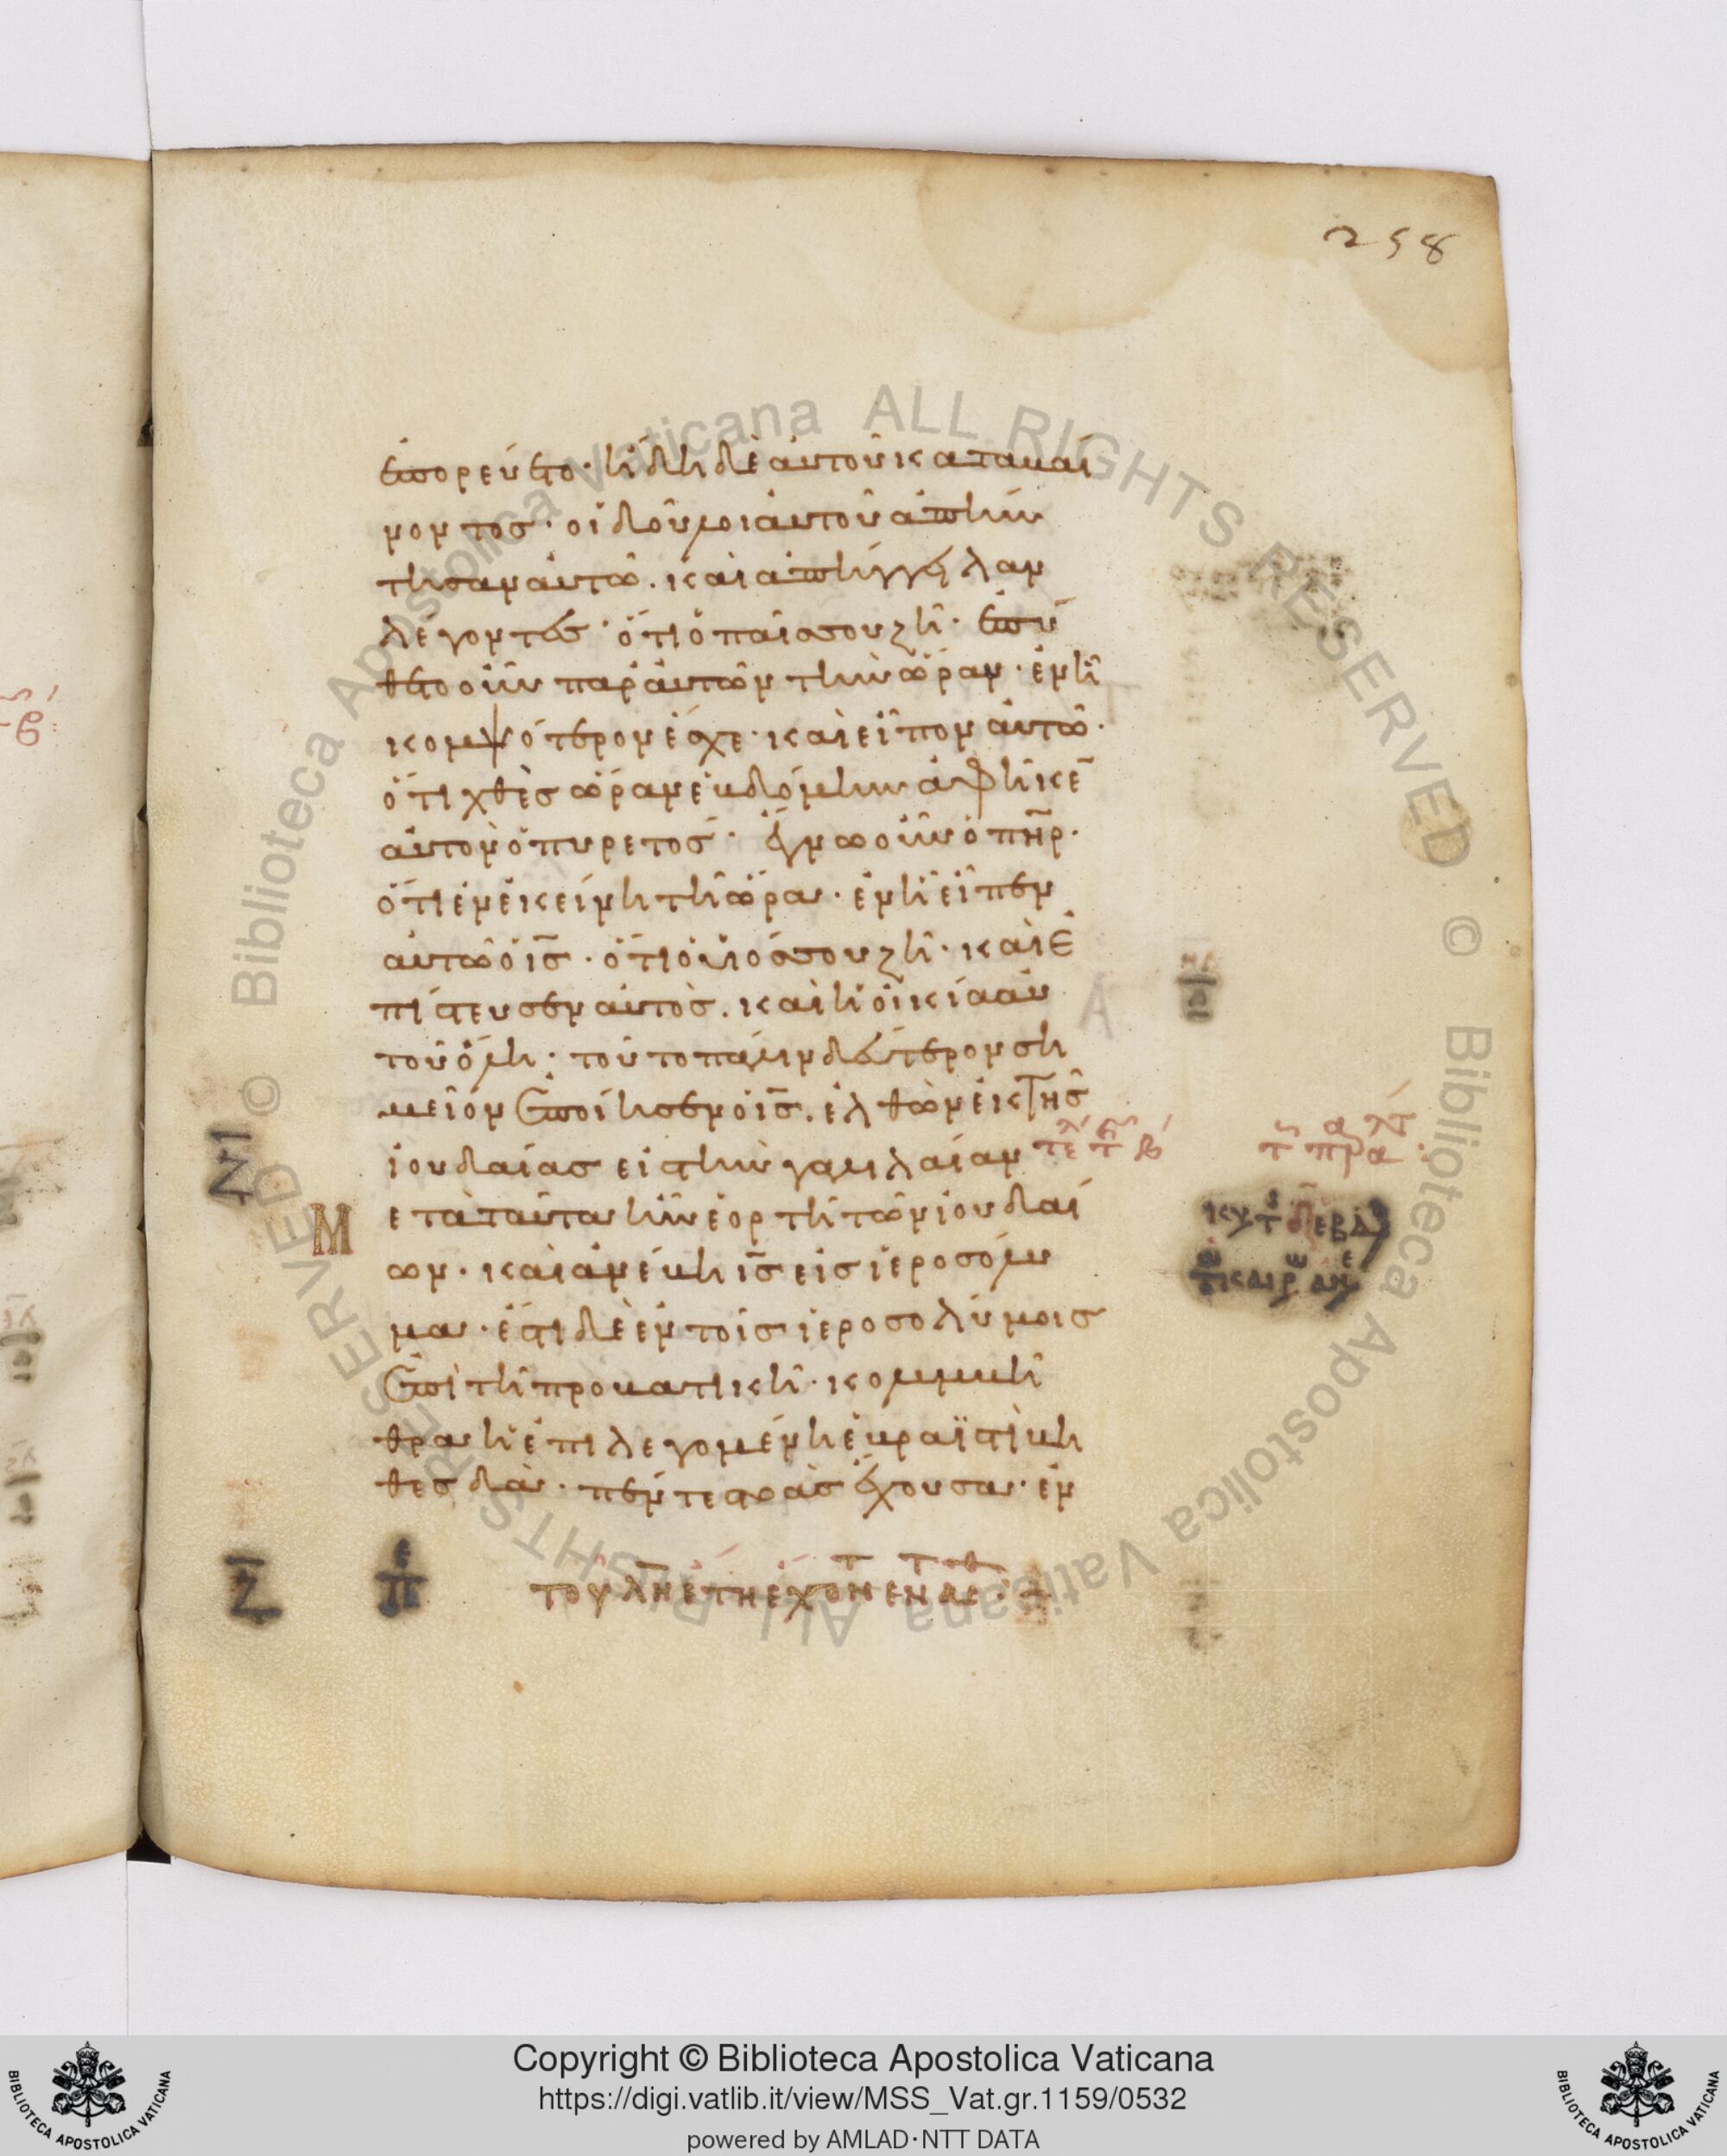 258
ἐπορεύετο· ἤδη δὲ αὐτοῦ καταβαί
νοντος· οἱ δοῦλοι αὐτοῦ ἀπήν
τησαν αὐτῶ. καὶ ἀπήγγειλαν
λέγοντες· ὅτι ὁ παῖς σου ζῆ· ἐπύ
θετο οὖν παρ' αὐτῶν τὴν ὥραν· ἐν ἧ
κομψότερον ἔσχε· καὶ εἶπον αὐτῶ·
ὅτι χθὲς ὥραν ἑβδόμην ἀφῆκε̄
αὐτὸν ὁ πυρετός· ἔγνω οὖν ὁ πη̄ρ·
ὅτι ἐν ἐκείνη τῆ ὥρα· ἐν ἧ εἶπεν
αὐτῶ ὁ ις̄· ὅτι ὁ υἱός σου ζῆ· καὶ ἐ
πίστευσεν αὐτὸς. καὶ ἡ οἰκία αὐ
τοῦ ὅλη· τοῦτο πάλιν δεύτερον ση
μεῖον ἐποίησεν ὁ ις̄. ἐλθὼν ἐκ τῆς
ἰουδαίας εἰς τὴν γαλιλαίαν
Μετὰ ταῦτα ἦν ἑορτὴ τῶν ἰουδαί
ων· καὶ ἀνέβη ις̄ εἰς ἱεροσόλυ
μα· ἔστι δὲ ἐν τοῖς ἱεροσολύμοις
ἐπὶ τῆ προβατικῆ· κολυμβή
θρα ἡ ἐπιλεγομένη ἑβραϊστὶ βη
θεσδὰ· πέντε στοὰς ἔχουσα· ἐν
Ζ̄
Copyright © Biblioteca Apostolica Vaticana
https://digi.vatlib.it/view/MSS_Vat.gr.1159/0532
powered by AMLAD·NTT DATA
BIBLIOTECA APOSTOLICA VATICANA
BIBLIOTECA APOSTOLICA VATICANA
© Biblioteca Apostolica Vaticana ALL RIGHTS RESERVED
© Biblioteca Apostolica Vaticana ALL RIGHTS RESERVED